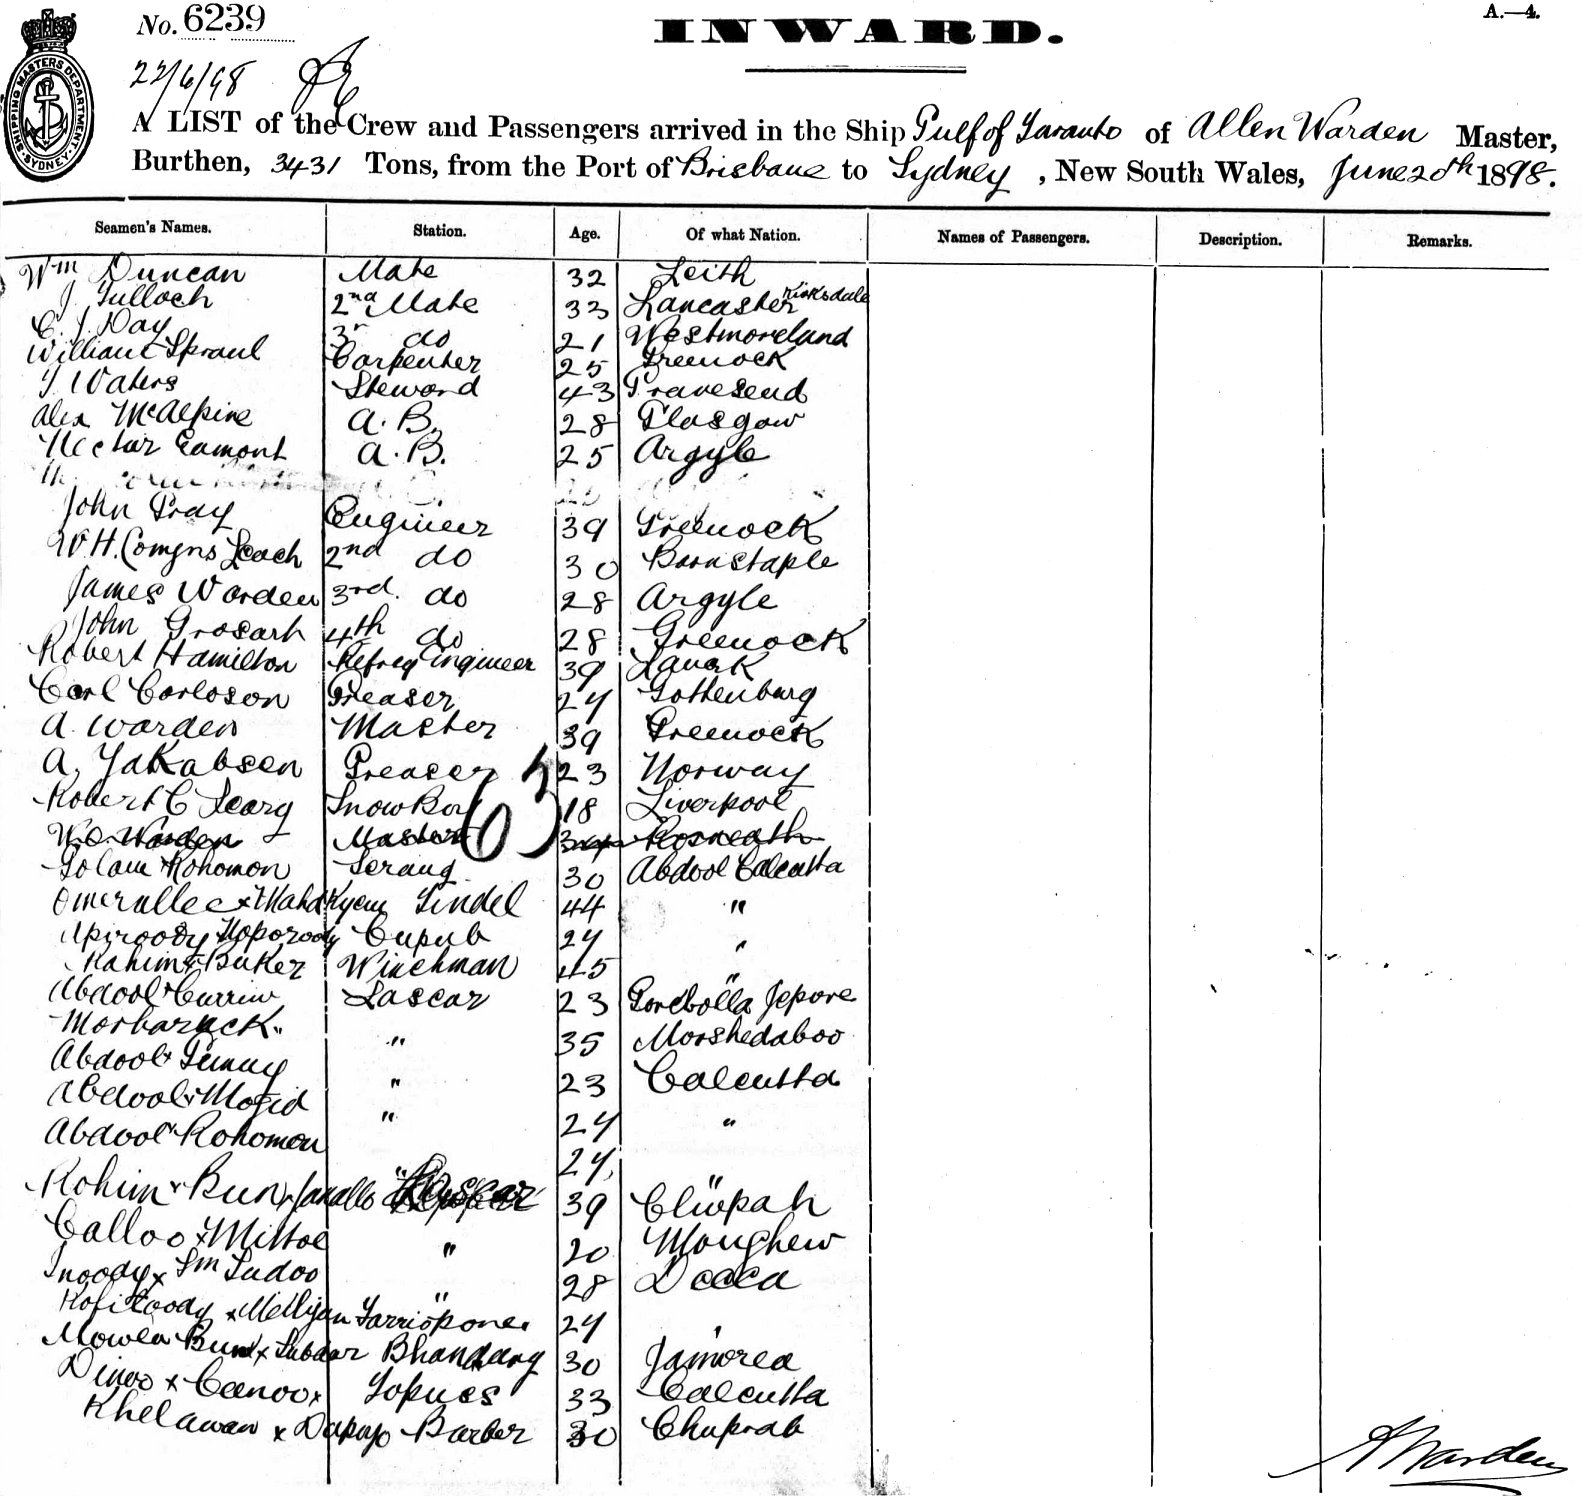 No. 6239
INWARD.
A.—4.
SHIPPING MASTERS DEPARTMENT SYDNEY
22/6/98
A LIST of the Crew and Passengers arrived in the Ship Gulf of Taranto of Allen Warden Master,
Burthen, 3431 Tons, from the Port of Brisbane to Sydney, New South Wales, June 20th 1898.
Seamen's Names. Station. Age. Of what Nation. Names of Passengers. Description. Remarks.
Wm Duncan Mate 32 Leith
J. Tulloch 2nd Mate 33 Lancaster
C. J. Day 3r do 21 Westmoreland
William Sproul Carpenter 25 Greenock
J Waters Steward 43 Gravesend
Alex McAlpine A.B. 28 Glasgow
Hectar Lamont A.B. 25 Argyle
John Gray Engineer 39 Greenock
W.H. Comyns Leach 2nd do 30 Barnstaple
James Warden 3rd. do 28 Argyle
John Grosart 4th do 28 Greenock
Robert Hamilton Refreg Engineer 39 Lanark
Carl Carloson Greaser 24 Gothenburg
A. Warden Master 39 Greenock
A. Yakabsen Greaser 23 Norway
Robert C Searg Snow Boy 18 Liverpool
63
W.O. Warden Master 34 Rosneath
Golam Rohomon Serang 30 Abdool Calcutta
Omerallee x Mahd Kyem Tindel 44 "
Apiroody Noporoody 24 "
Rahim x Buker Winchman 45 "
Abdool x Currim Lascar 23 Jepore
Morbaruck " " 35 Morshedaboo
Abdool x " 23 Calcutta
Abdool x Mojid " 24 "
Abdool x Rohomon " 24 "
Rohim x Bun x Lascar 39
Calloo x Mittoe " 20 Monghew
x Sm Ludoo " 28 Dacca
x 24 "
Mowla Bux x Subdar Bhandary 30
Dinoo x Canoo x Topues 33 Calcutta
Khelawan x Barber 30 Chuprah
A Warden